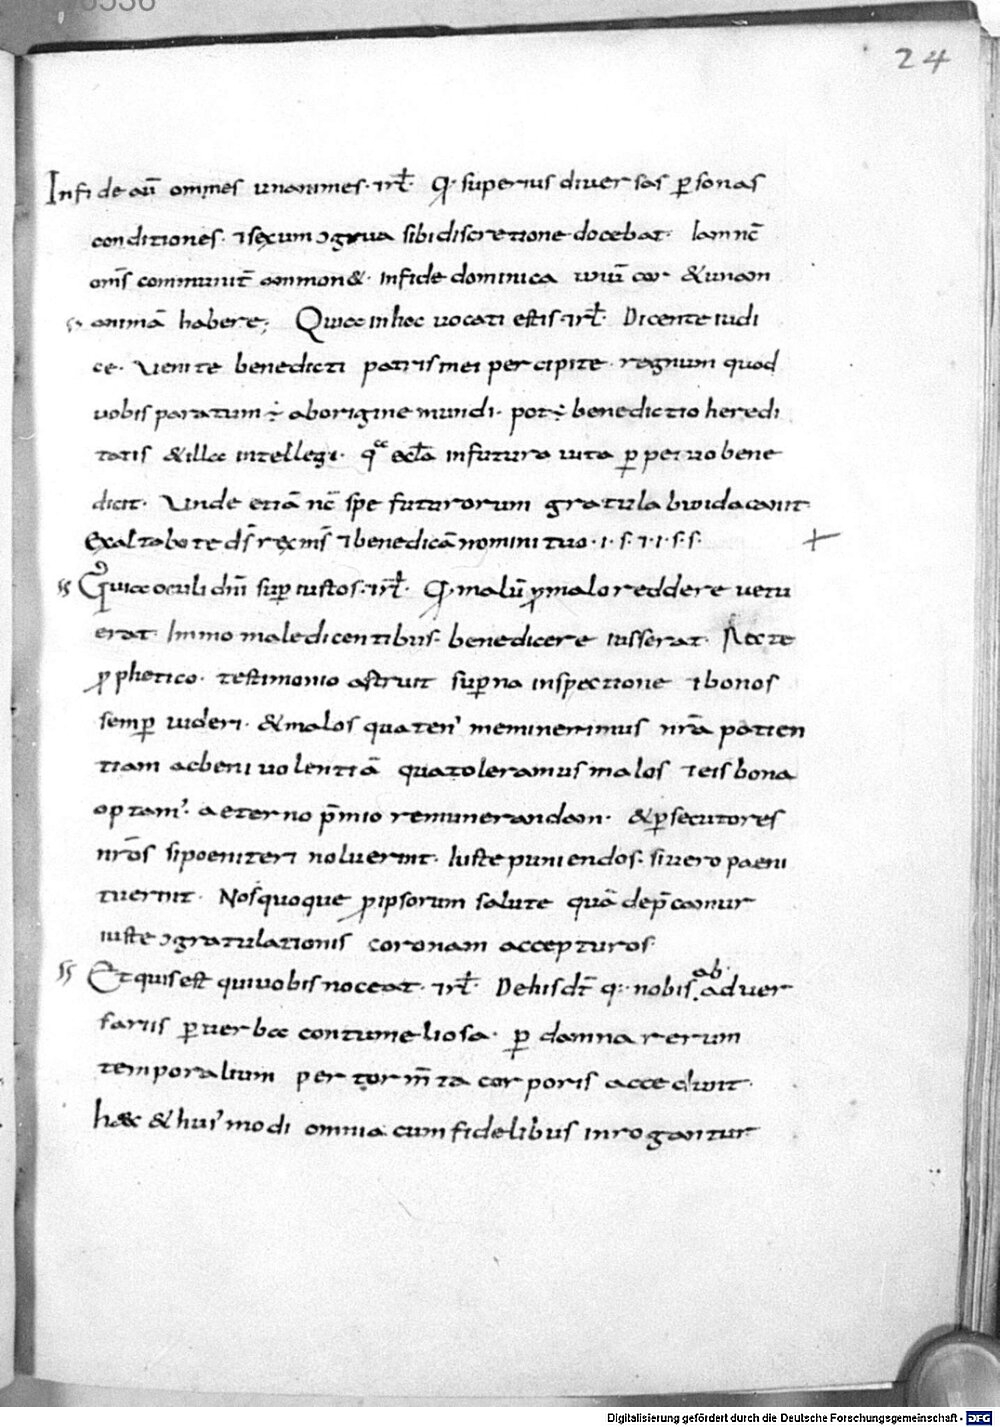 24
In fide aū ommes unanimes · ⁊rł. Q· superius diversas ꝑsonas
conditiones · ⁊ sexum ↄgrua sibi discretione docebat · Iam nc̄
om̄s communit̄ ammon& · In fide dominica unū cor · & unam
animā habere; Quia in hoc vocati estis · ⁊rł. Dicente iudi
ce · Venite benedicti patris mei percipite · regnum quod
vobis paratum ÷ ab origine mundi · pot÷ benedictio heredi
tatis & illa intellegi · qͣ eccła in futura uita ꝑpetuo bene
dicit · Unde etiā nc̄ spe futurorum gratulabunda canit
Exaltabo te ds̄ rex ms̄ ⁊ benedicā nomini tuo · i · s · ⁊ · i · s · s ·
Quia oculi dn̄i suꝑ iustos · ⁊rł. Q· malū ꝓ malo reddere vetu
erat · Immo maledicentibus · benedicere iusserat · Recte
ꝓphetico · testimonio astruit suꝑna inspectione ⁊ bonos
semꝑ uideri · & malos quaten' meminerimus nrā patien
tiam ac benivolentiā qua toleramus malos ⁊ eis bona
optam' · aeterno p̄mio remunerandam · & ꝑsecutores
nrōs si poeniteri noluerint · Iuste puniendos · si vero paeni
tuerint · Nos quoque ꝓ ipsorum salute quā dep̄camur
iuste ↄgratulationis coronam accepturos ·
Et quis est qui vobis noceat · ⁊rł. De his dt̄ q· nobis ab adver
sariis ꝑ verba contumeliosa · ꝑ damna rerum
temporalium per torm̄ta corporis accedunt ·
haec & hui'modi omnia cum fidelibus inrogantur
Digitalisierung gefördert durch die Deutsche Forschungsgemeinschaft - DFG